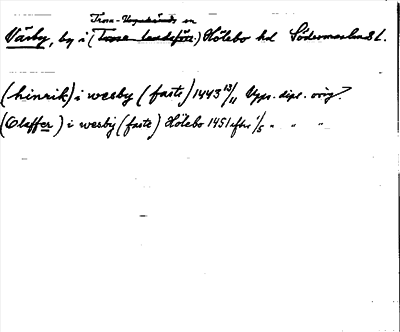 Trosa-Vagnhärads sn
Väsby, by i (Trosa landsförs.) Hölebo hd Södermanlands l.
(hinrik) i wesby (faste) 1443 13/11 Upps. dipl. orig.
(Olaffer) i wesbÿ (faste) Hölebo 1451 efter 1/5 " " "